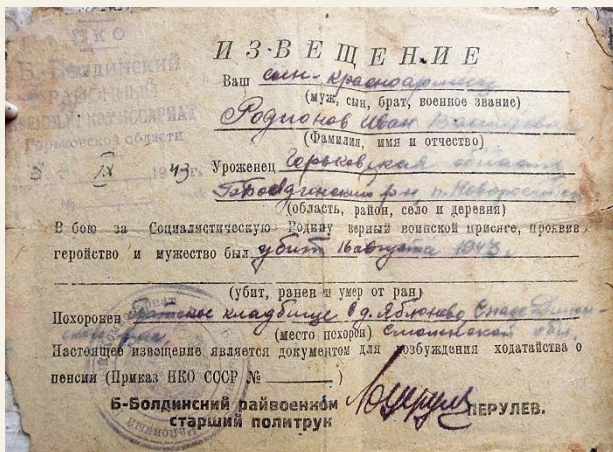 НКО
Б-Болдинский
РАЙОННЫЙ
ВОЕННЫЙ КОМИССАРИАТ
Горьковской области
IX 1943 г.
ИЗВЕЩЕНИЕ
Ваш сын-красноармеец
(муж, сын, брат, военное звание)
Родионов Иван
(Фамилия, имя и отчество)
Уроженец Горьковская область
(область, район, село и деревня)
В бою за Социалистическую Родину верный воинской присяге, проявив
геройство и мужество был убит 16 августа 1943 г.
(убит, ранен и умер от ран)
Похоронен братское кладбище в д. Яблоново Спас-Демен-
(место похорон) Смоленской обл.
Настоящее извещение является документом для возбуждения ходатайства о
пенсии (Приказ НКО СССР № )
Б-Болдинский райвоенком
старший политрук ПЕРУЛЕВ.